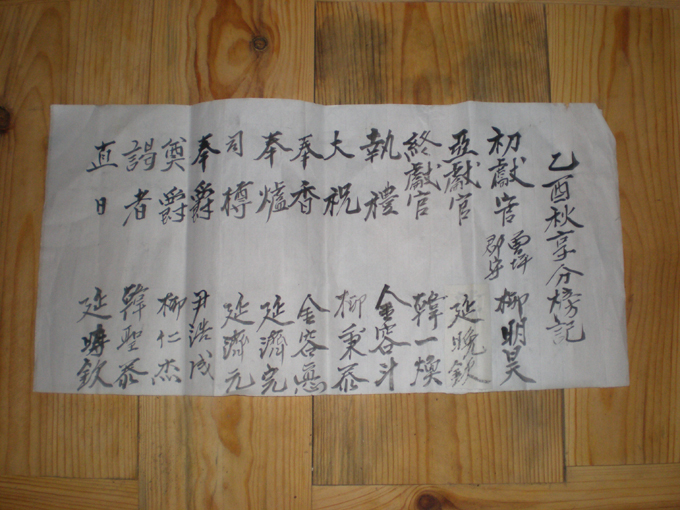 乙酉秋享分榜記
初獻官 曾坪郡守 柳明昊
亞獻官 延晩欽
終獻官 韓一煥
執禮 金容斗
大祝 柳秉泰
奉香 金容惪
奉爐 延濟完
司樽 延濟元
奉爵 尹浩成
奠爵 柳仁杰
謁者 韓聖泰
直日 延時欽